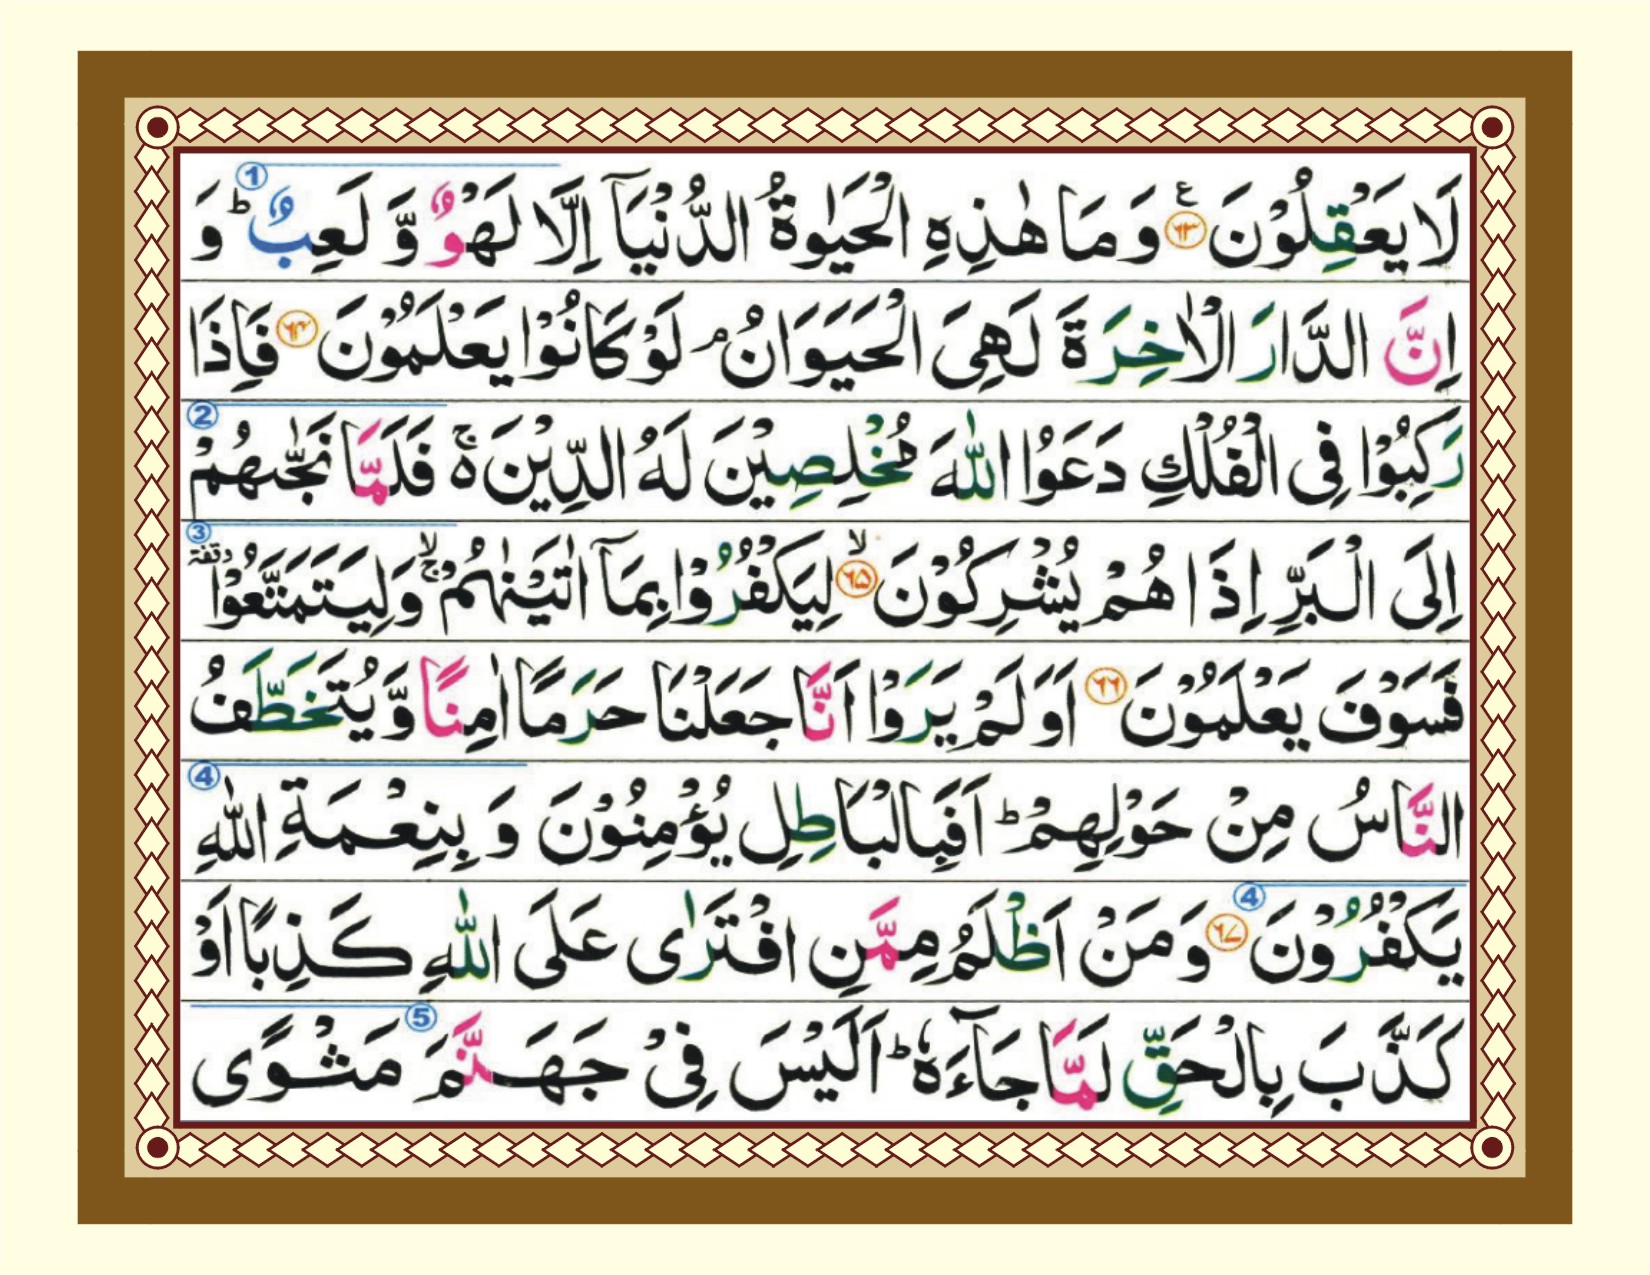 لَا يَعْقِلُوْنَ ﴿۶۳﴾ ع وَ مَا هٰذِهِ الْحَيٰوةُ الدُّنْيَاۤ اِلَّا لَهْوٌ وَّ لَعِبٌ ؕ ① وَ
اِنَّ الدَّارَ الْاٰخِرَةَ لَهِيَ الْحَيَوَانُ ۘ لَوْ كَانُوْا يَعْلَمُوْنَ ﴿۶۴﴾ فَاِذَا
رَكِبُوْا فِي الْفُلْكِ دَعَوُا اللّٰهَ مُخْلِصِيْنَ لَهُ الدِّيْنَ ۚ۬ فَلَمَّا نَجّٰىهُمْ ②
اِلَى الْبَرِّ اِذَا هُمْ يُشْرِكُوْنَ ﴿۶۵﴾ ۙ لِيَكْفُرُوْا بِمَاۤ اٰتَيْنٰهُمْ ۙۚ وَلِيَتَمَتَّعُوْا وقفۃ ③
فَسَوْفَ يَعْلَمُوْنَ ﴿۶۶﴾ اَوَ لَمْ يَرَوْا اَنَّا جَعَلْنَا حَرَمًا اٰمِنًا وَّ يُتَخَطَّفُ
النَّاسُ مِنْ حَوْلِهِمْ ؕ اَفَبِالْبَاطِلِ يُؤْمِنُوْنَ وَ بِنِعْمَةِ اللّٰهِ ④
يَكْفُرُوْنَ ﴿۶۷﴾ ④ وَ مَنْ اَظْلَمُ مِمَّنِ افْتَرٰى عَلَى اللّٰهِ كَذِبًا اَوْ
كَذَّبَ بِالْحَقِّ لَمَّا جَآءَهٗ ؕ اَلَيْسَ فِيْ جَهَنَّمَ ⑤ مَثْوًى